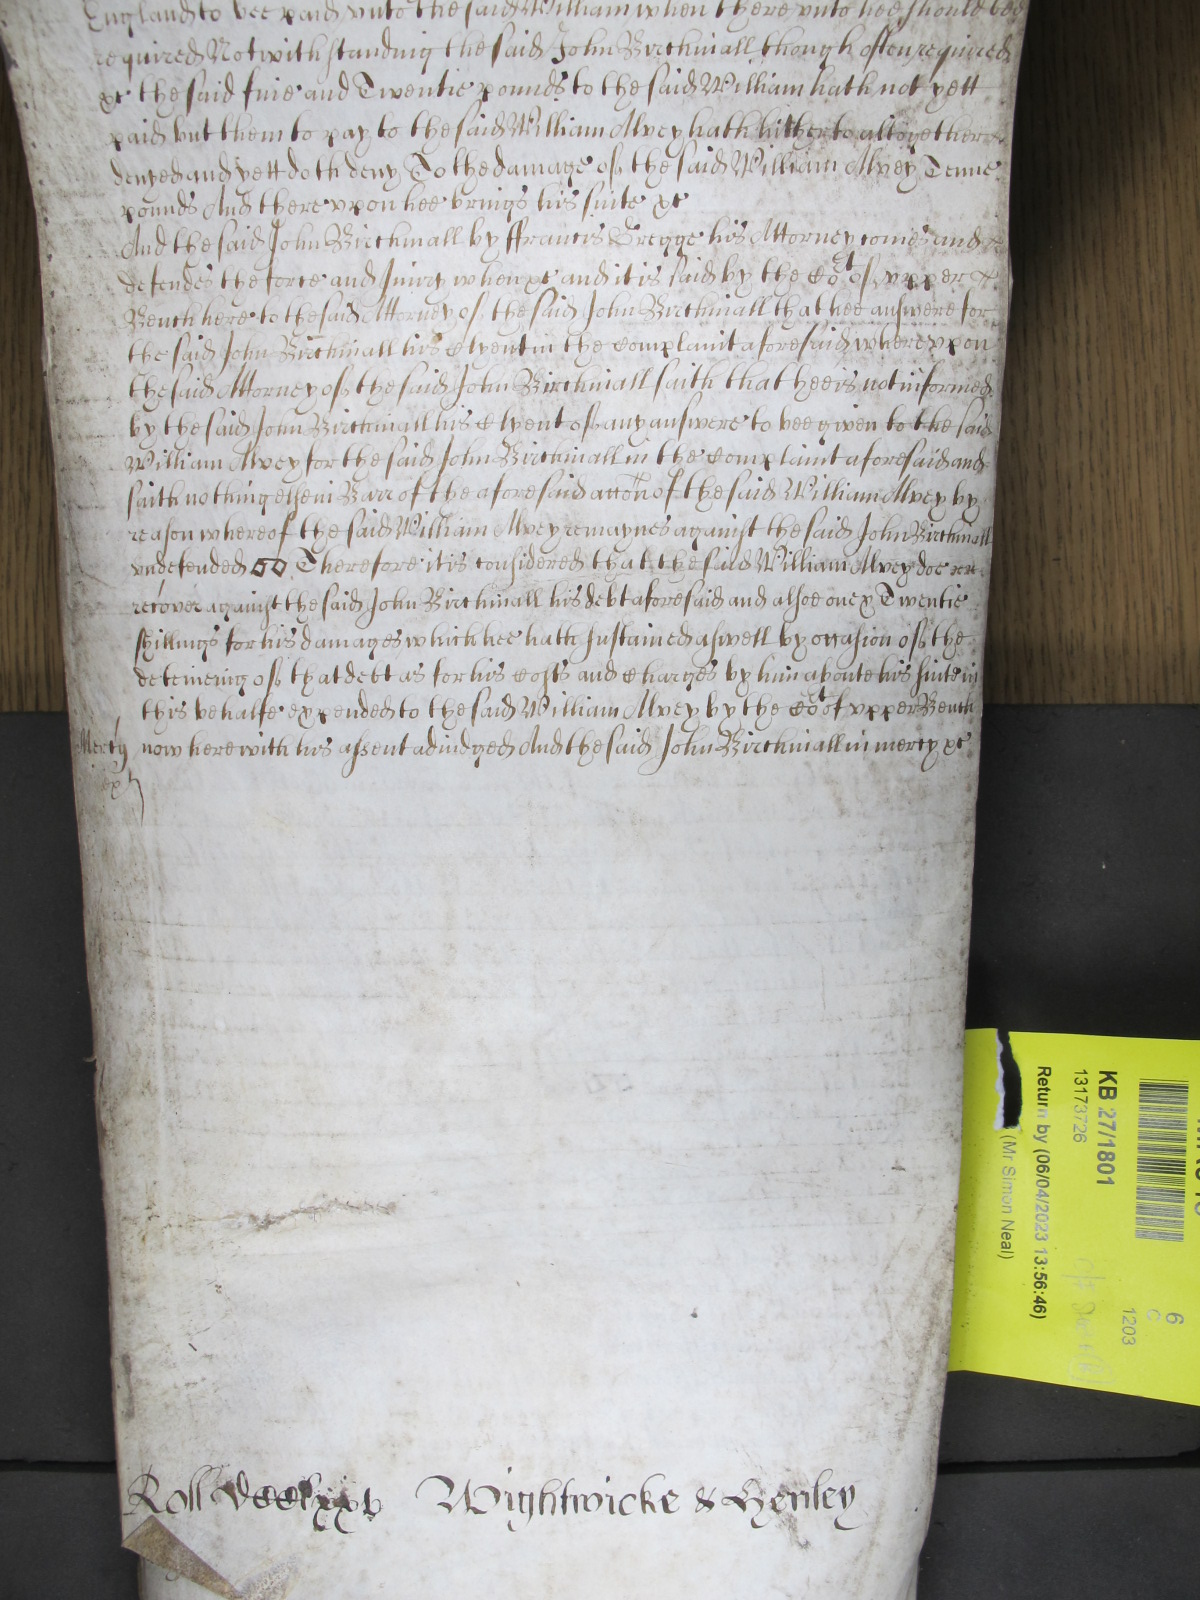 England to bee paid unto the said William when there unto hee should bee
required Notwithstanding the said John Birchinall though often required
&c the said five and Twentie pounds to the said William hath not yett
paid but them to pay to the said William Alvey hath hitherto altogether
denyed and yett doth deny To the damage of the said William Alvey Tenne
pounds And thereupon hee brings his suite &c
And the said John Birchinall by ffrancis Gregge his Attorney comes and
defendes the force and Iniury when &c and it is said by the Cort of upper
Bench here to the said Attorney of the said John Birchinall that hee answere for
the said John Birchinall his Clyent in the Complaint aforesaid whereupon
the said Attorney of the said John Birchinall saith that hee is not informed
by the said John Birchinall his Clyent of any answere to bee given to the said
William Alvey for the said John Birchinall in the Complaint aforesaid and
saith nothing else in Barr of the aforesaid accon of the said William Alvey by
reason whereof the said William Alvey remaynes against the said John Birchinall
undefended Therefore it is considered that the said William Alvey doe
recover against the said John Birchinall his debt aforesaid and alsoe Twentie
shillings for his damages which hee hath sustained aswell by occasion of the
deteineing of that debt as for his Costs and Charges by him aboute his suite in
this behalfe expended to the said William Alvey by the Cort of upper Bench
Mercy now here with his assent adiudged And the said John Birchinall in mercy &c
Roll Wightwicke & Henley
KB 27/1801
13173726
Return by (06/04/2023 13:56:46)
(Mr Simon Neal)
6
C
1203